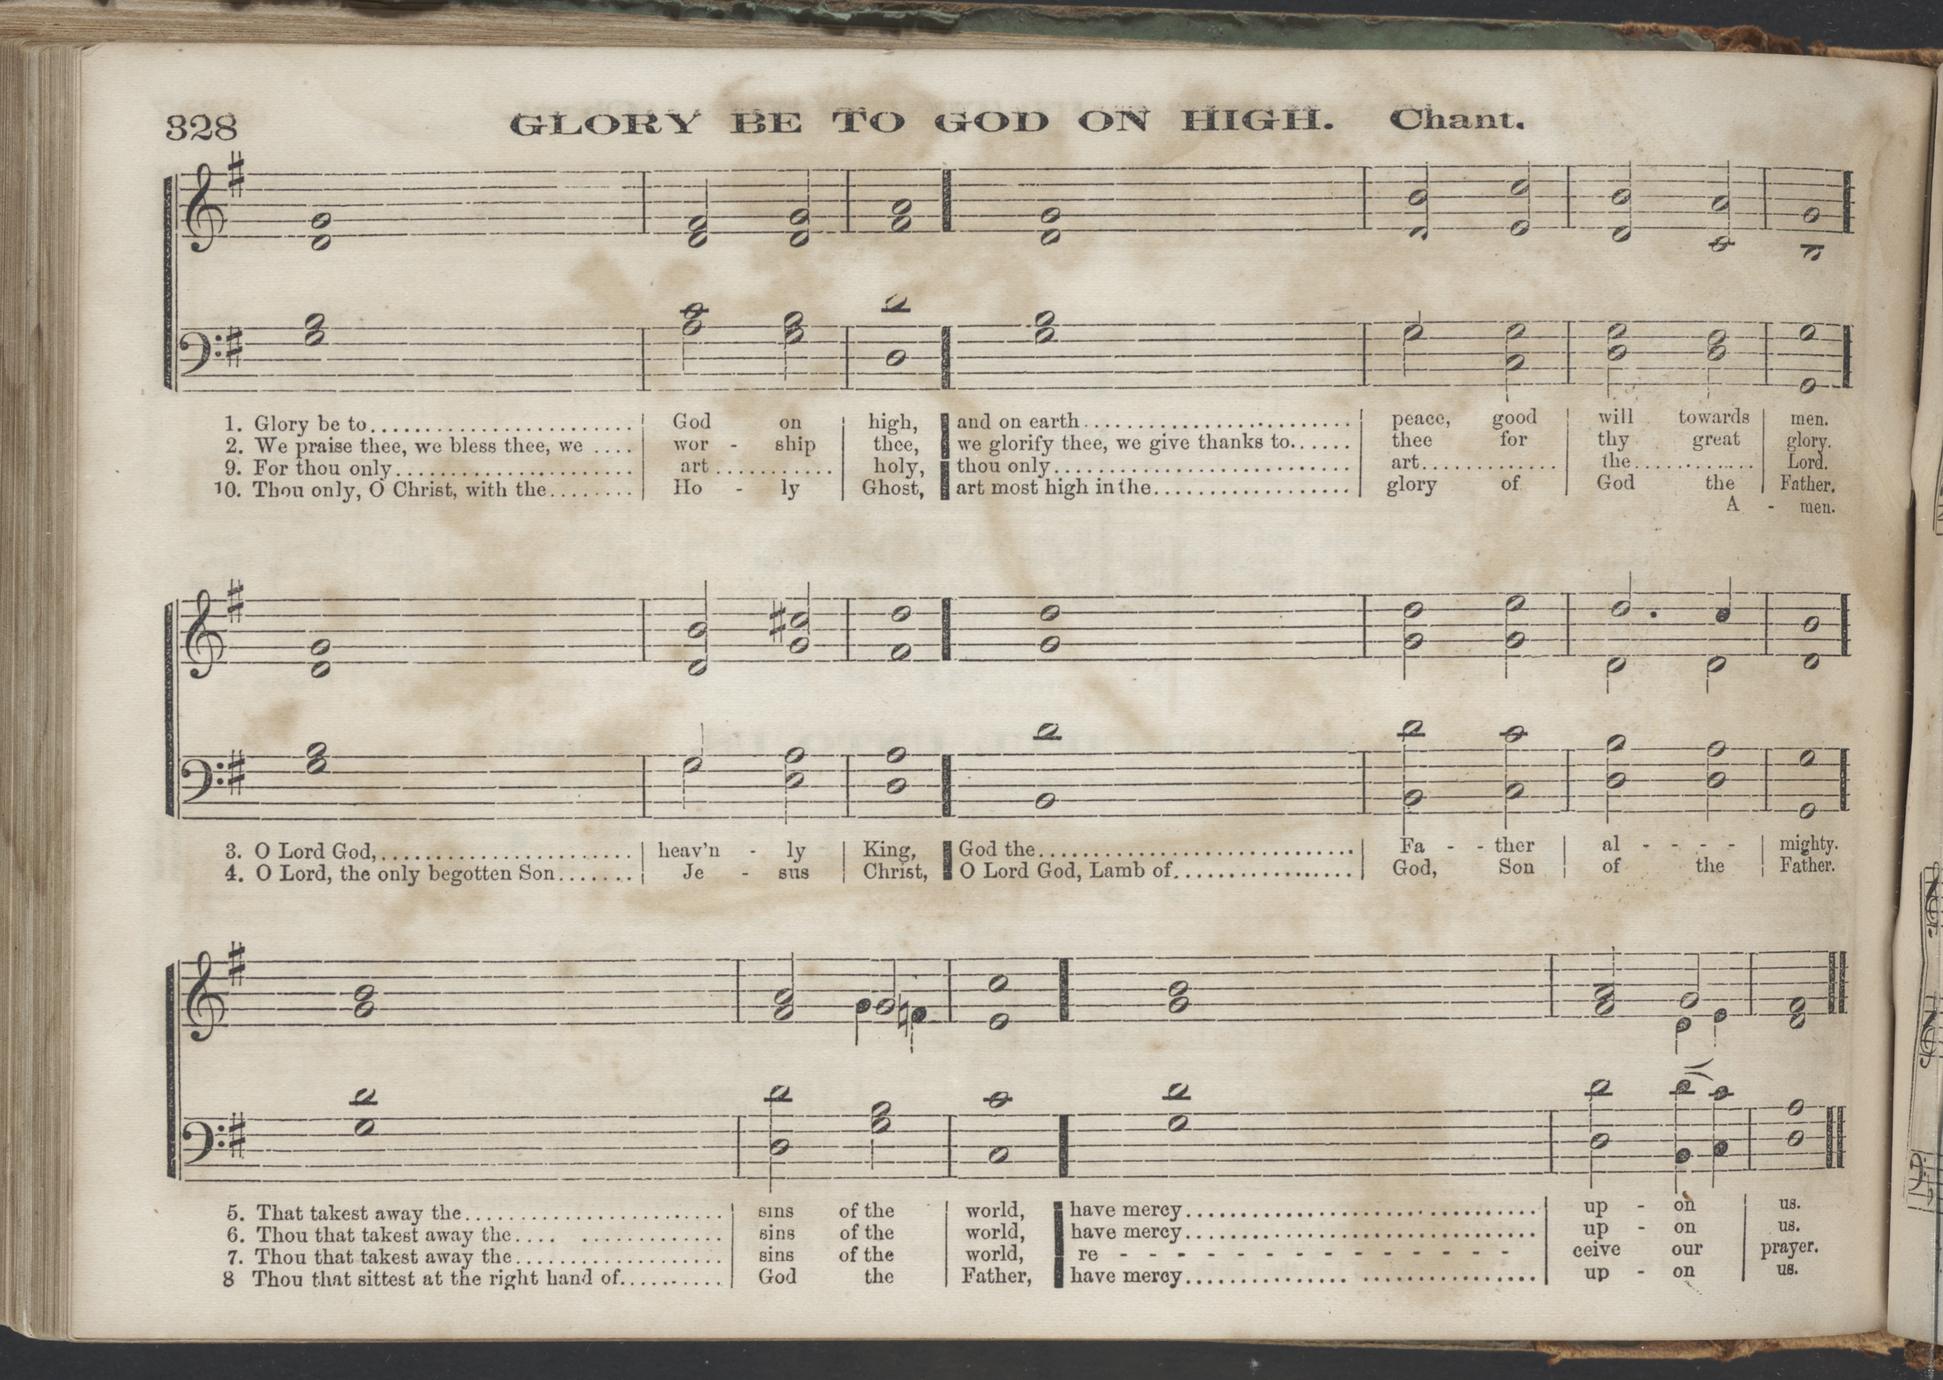 328
GLORY BE TO GOD ON HIGH. Chant.
1. Glory be to.......................... | God on | high, | and on earth........................... | peace, good | will towards | men.
2. We praise thee, we bless thee, we .... | wor - ship | thee, | we glorify thee, we give thanks to...... | thee for | thy great | glory.
9. For thou only........................ | art............ | holy, | thou only.............................. | art.............. | the............ | Lord.
10. Thou only, O Christ, with the........ | Ho - ly | Ghost, | art most high in the.................... | glory of | God the | Father.
A - men.
3. O Lord God,.......................... | heav'n - ly | King, | God the................................ | Fa - - ther | al - - - - | mighty.
4. O Lord, the only begotten Son....... | Je - sus | Christ, | O Lord God, Lamb of................... | God, Son | of the | Father.
5. That takest away the.......................... | sins of the | world, | have mercy................................... | up - on | us.
6. Thou that takest away the.... .............. | sins of the | world, | have mercy................................... | up - on | us.
7. Thou that takest away the..................... | sins of the | world, | re - - - - - - - - - - - - - - | ceive our | prayer.
8 Thou that sittest at the right hand of.......... | God the | Father, | have mercy................ .................. | up - on | us.